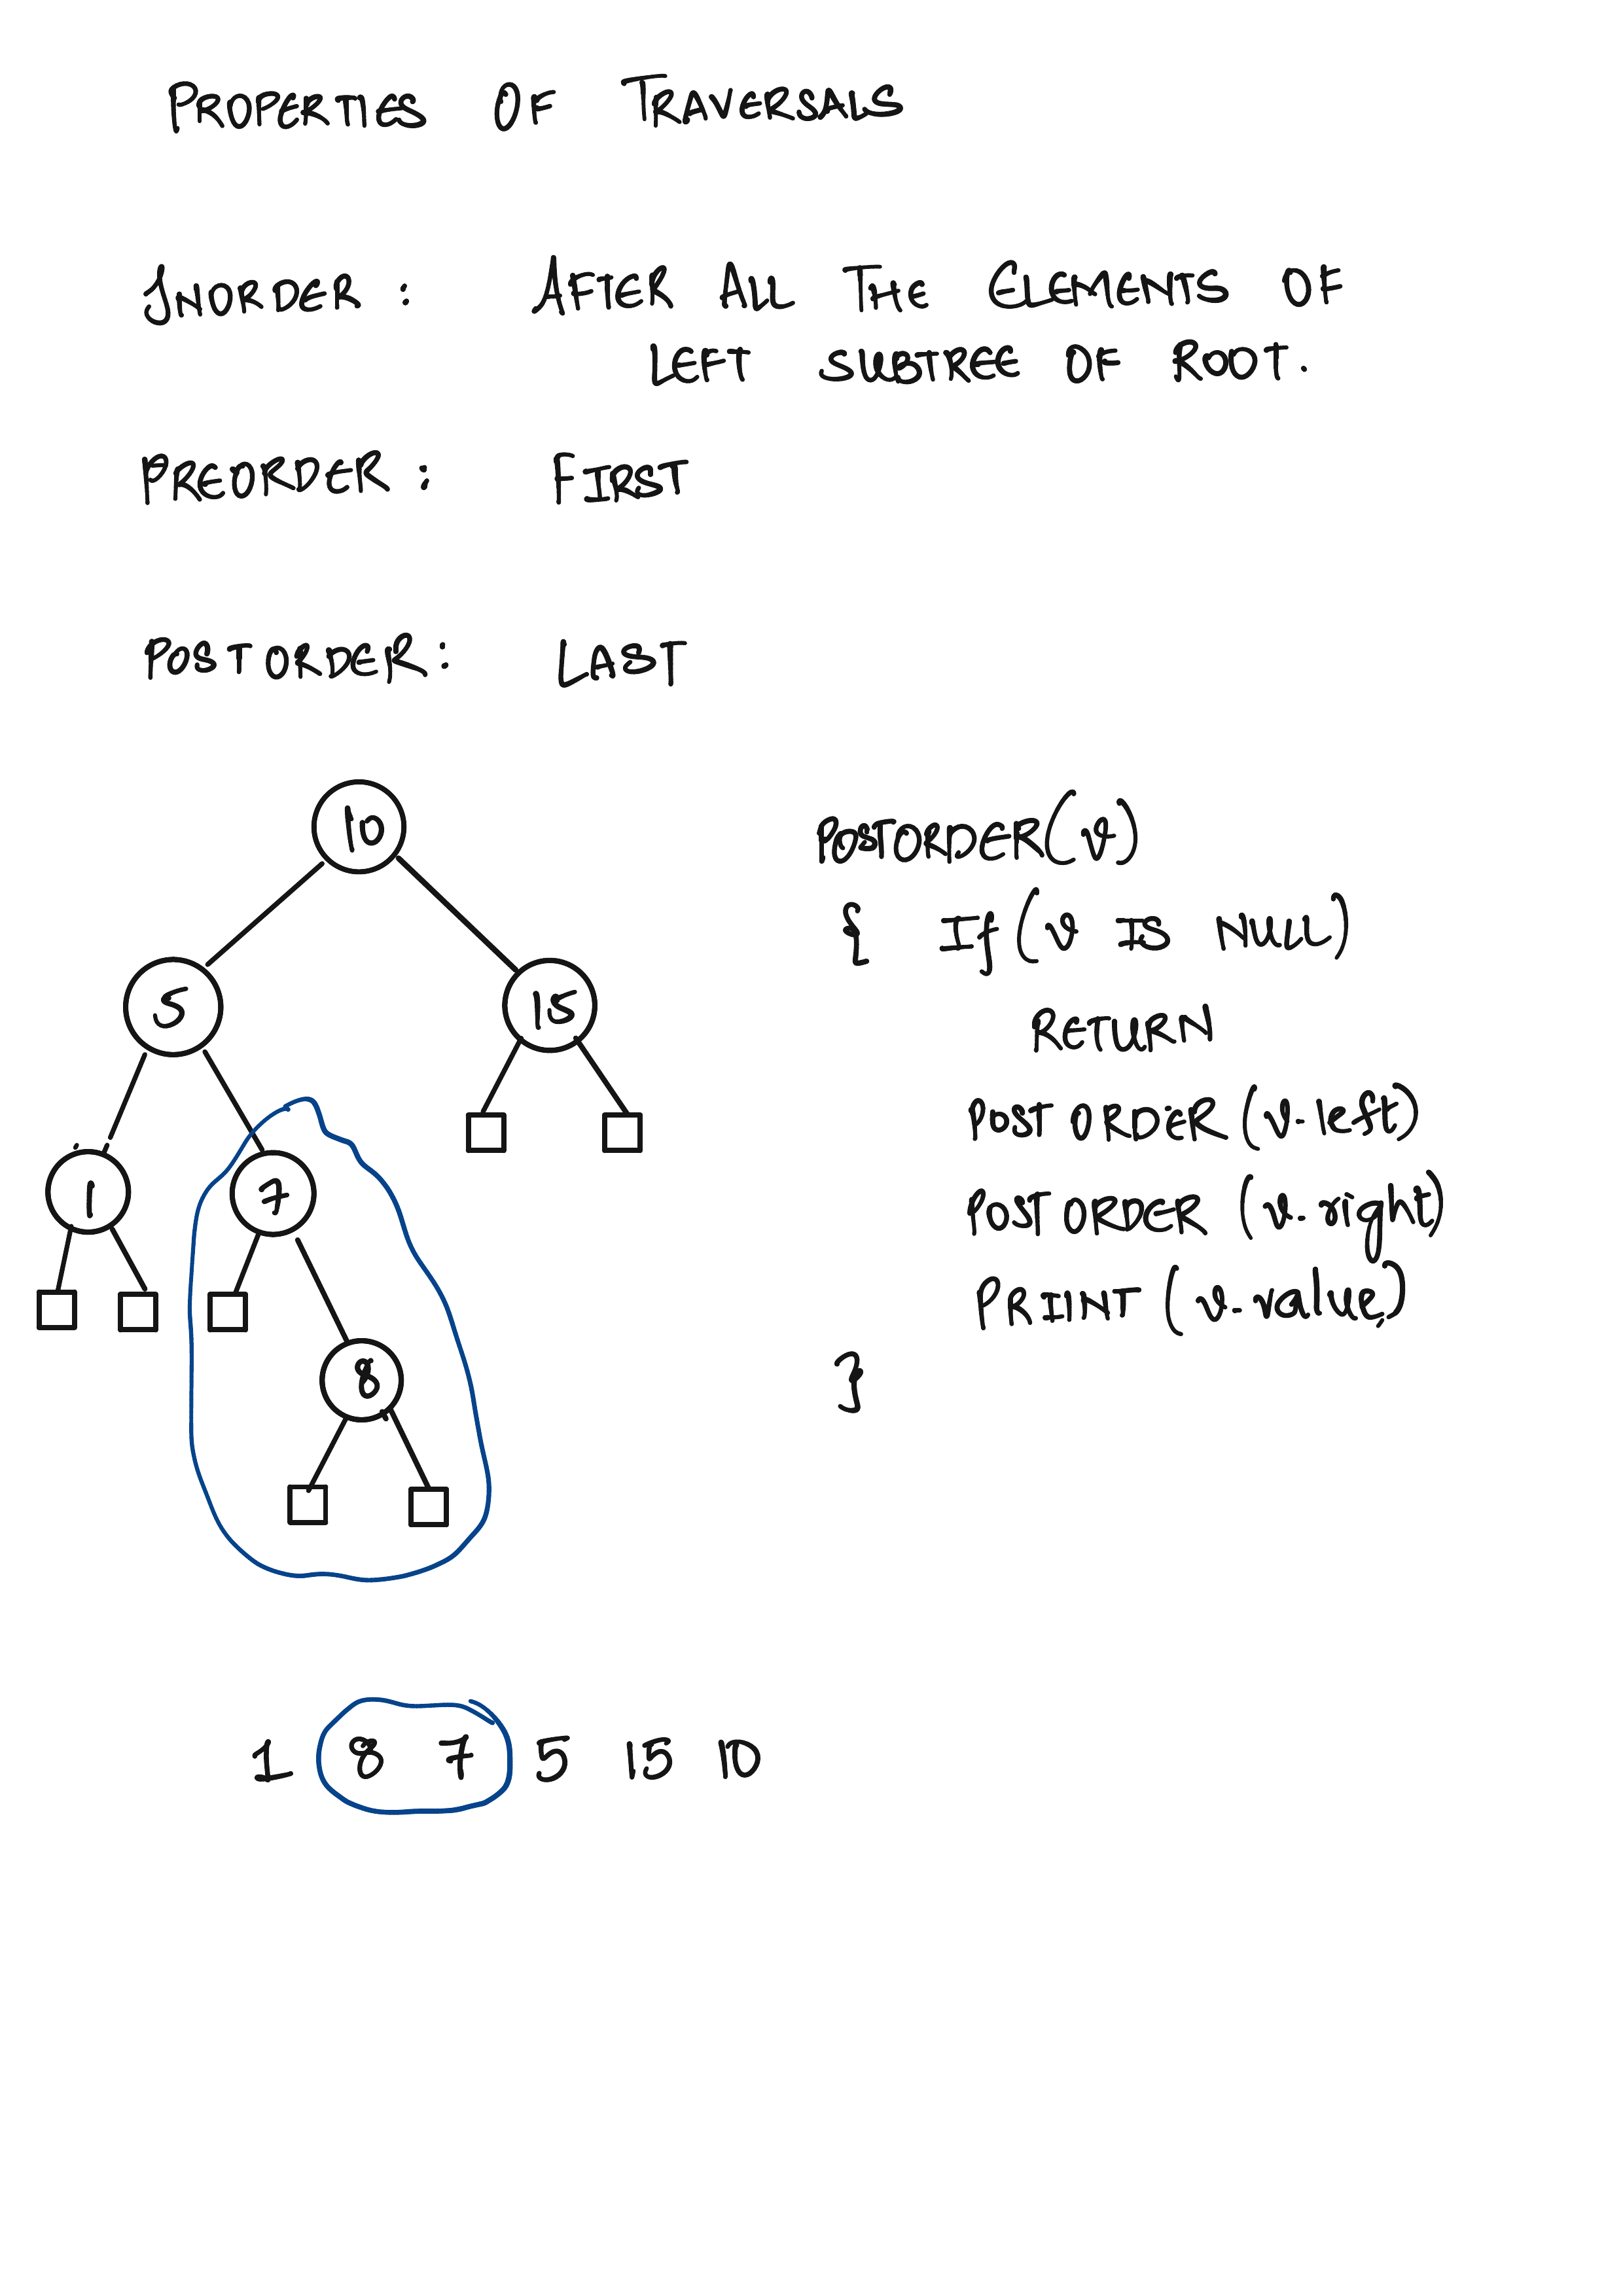 PROPERTIES OF TRAVERSALS
INORDER : AFTER ALL THE ELEMENTS OF
LEFT SUBTREE OF ROOT.
PREORDER : FIRST
POSTORDER : LAST
10
5 15
1 7
8
POSTORDER(v)
{ If (v IS NULL)
RETURN
POSTORDER (v.left)
POSTORDER (v.right)
PRINT (v.value)
}
1 8 7 5 15 10